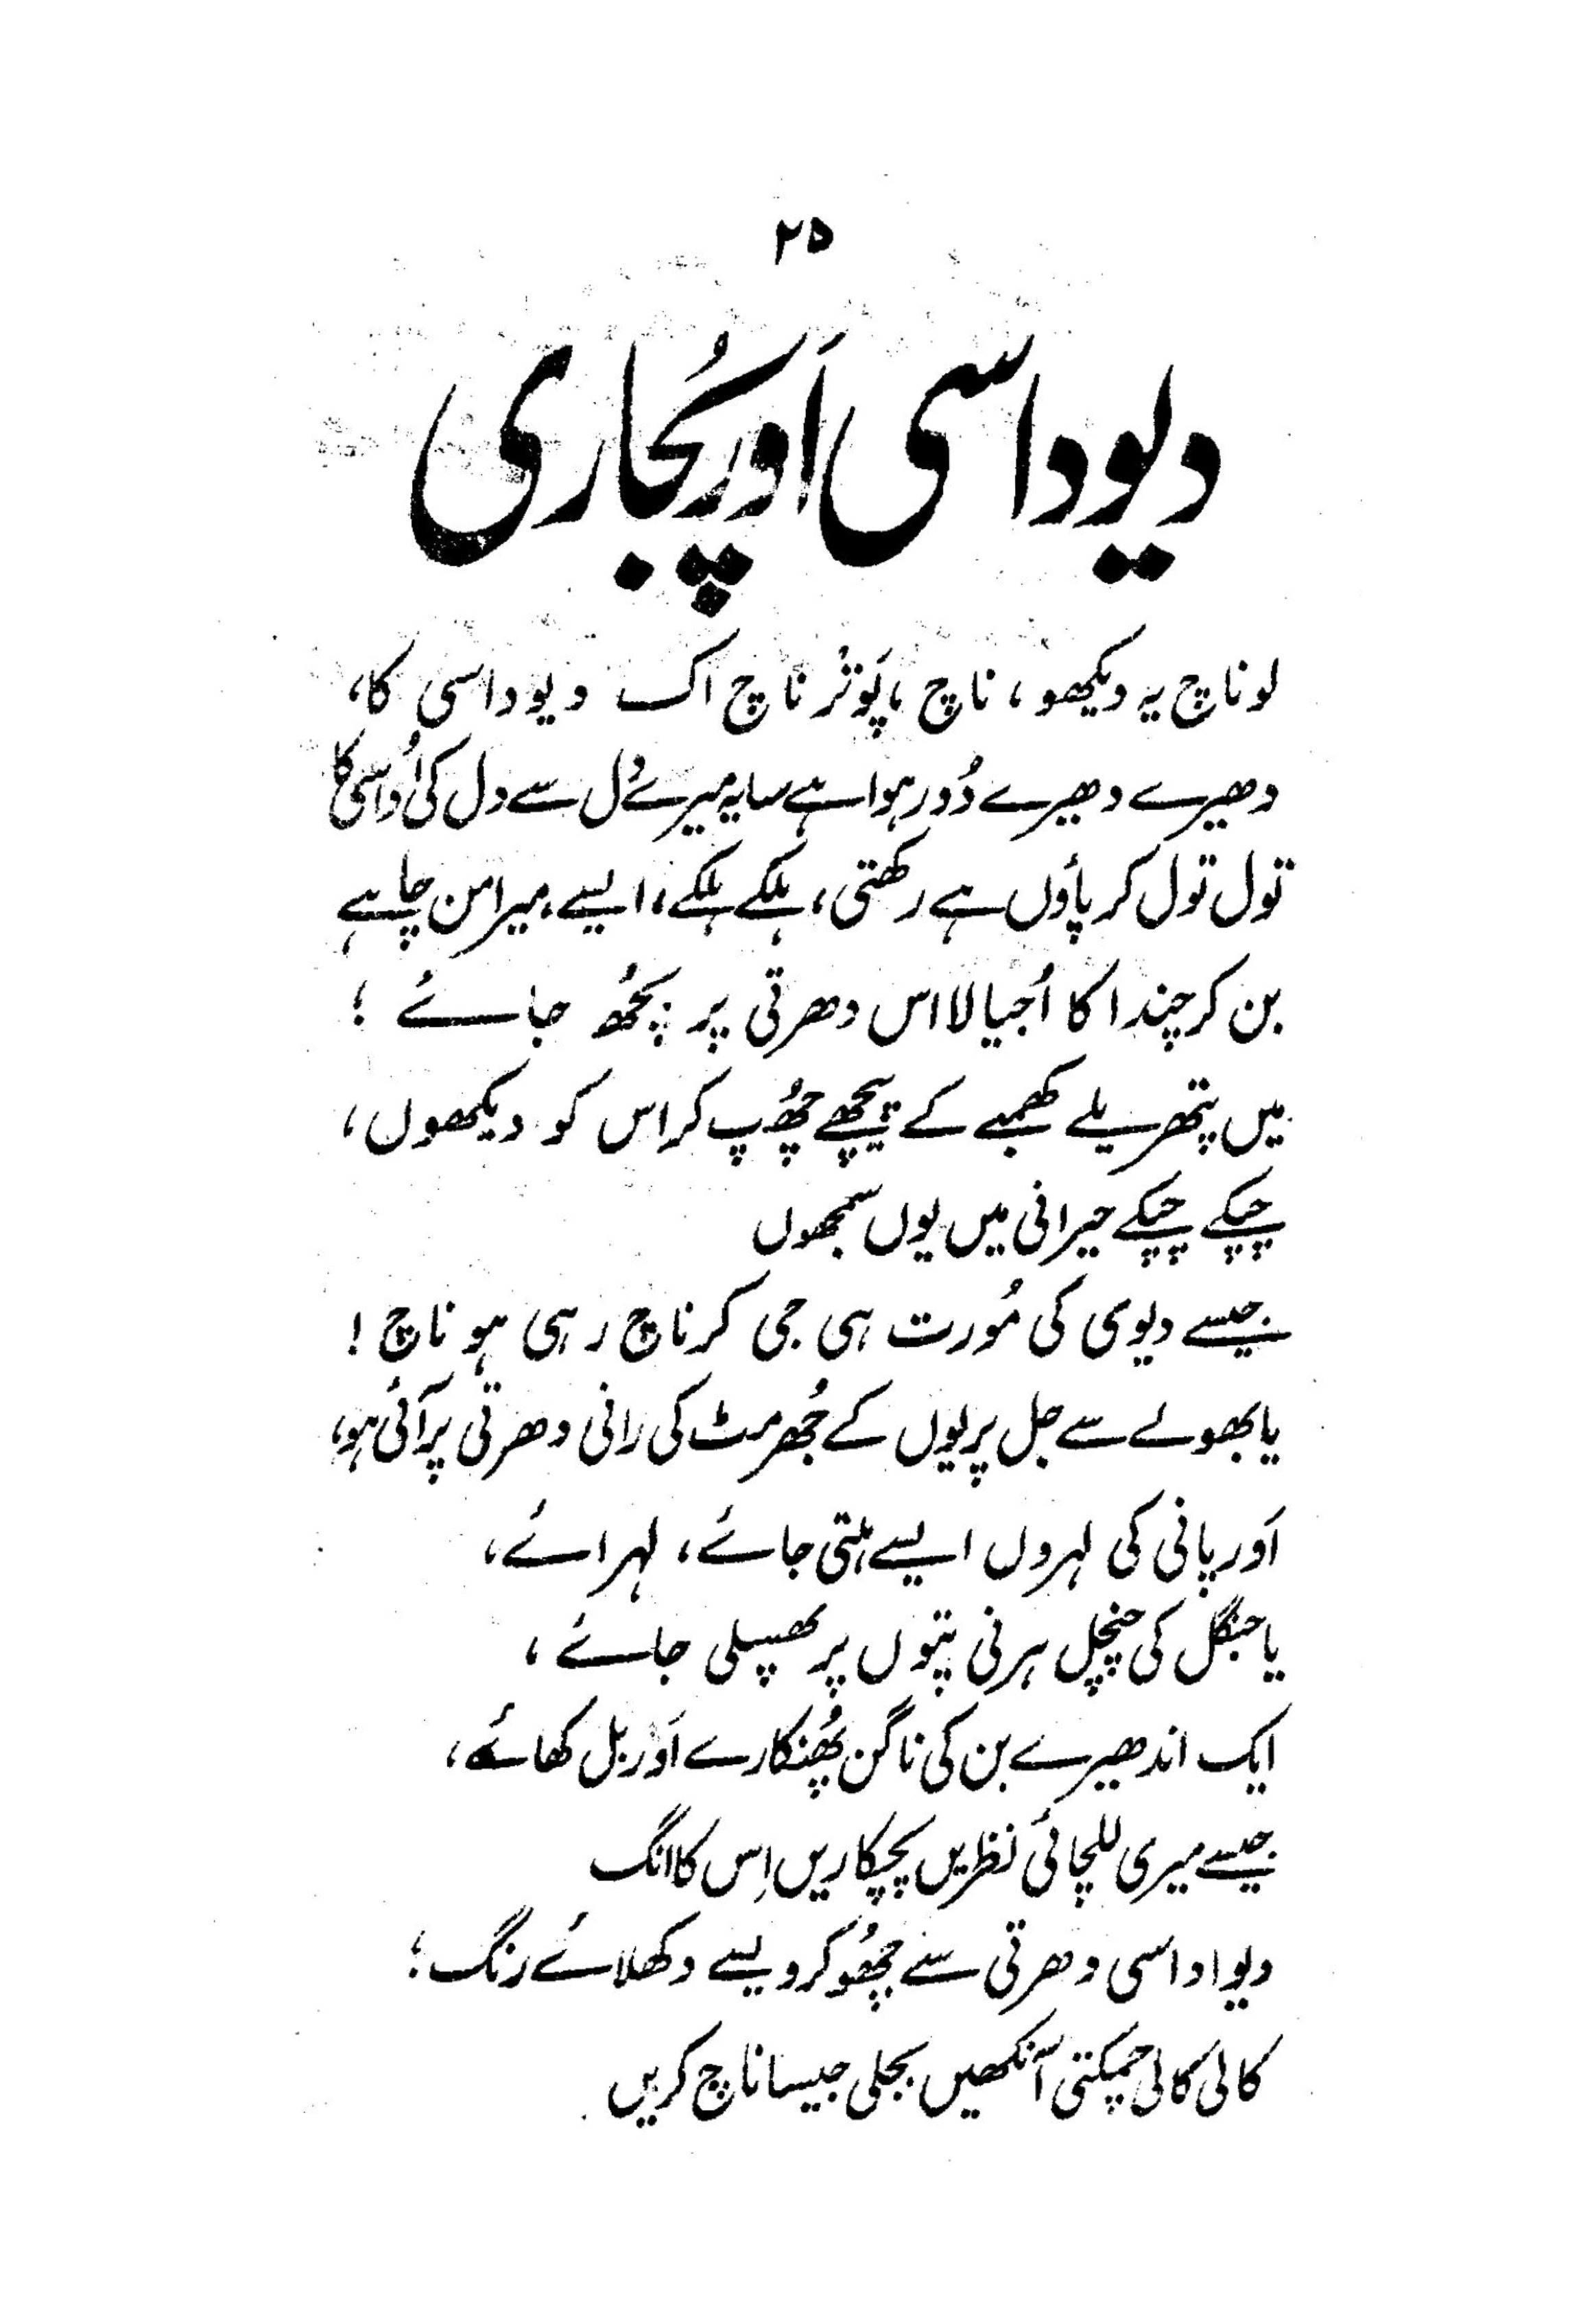 ۲۵
دیوداسی اَور پُجاری
لو ناچ یہ دیکھو، ناچ، پَوتْر ناچ اک دیوداسی کا،
دھیرے دھیرے دُور ہوا ہے سایہ میرے دل سے دل کی اُداسی کا
تول تول کر پاؤں ہے رکھتی، ہلکے ہلکے، ایسے، میرا من چاہے
بن کر چندا کا اُجیالا اس دھرتی پر بِچھ جائے ؛
میں پتھریلے کھمبے کے پیچھے چھُپ کر اس کو دیکھوں،
چپکے چپکے حیرانی میں یوں سمجھوں
جیسے دیوی کی مُورت ہی جی کر ناچ رہی ہو ناچ !
یا بھولے سے جل پریوں کے جُھرمٹ کی رانی دھرتی پر آئی ہو،
اَور پانی کی لہروں ایسے ہلتی جائے، لہرائے،
یا جنگل کی چنچل ہرنی پتوں پر پھسلی جائے ،
ایک اندھیرے بن کی ناگن پُھنکارے اَور بل کھائے،
جیسے میری للچائی نظریں پچکاریں اِس کا انگ
دیوا داسی دھرتی سے چُھو کر ویسے دکھلائے رنگ ؛
کالی کالی چمکتی آنکھیں بجلی جیسا ناچ کریں